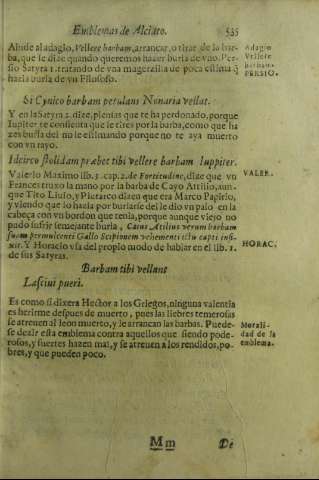 Emblemas de Alciato. 535
Alude al adagio, Vellere barbam, arrancar, o tirar de la bar-
ba, que se dize quando queremos hazer burla de vno. Per-
sio Satyra 1. tratando de vna mugerzilla de poca estima q̃
hazia burla de vn Filosofo.
Adagio
Vellere
barbam.
PERSIO.
Si Cynico barbam petulans Nonaria vellat.
Y en la Satyra 2. dize, piensas que te ha perdonado, porque
Iupiter te consienta que le tires por la barba, como que ha
zes burla del no le estimando porque no te aya muerto
con vn rayo.
Idcirco stolidam præbet tibi vellere barbam Iuppiter.
Valerio Maximo lib. 3. cap. 2. de Fortitudine, dize que vn
Frances truxo la mano por la barba de Cayo Attilio, aun-
que Tito Liuio, y Plutarco dizen que era Marco Papirio,
y viendo que lo hazia por burlarse del le dio vn palo en la
cabeça con vn bordon que tenia, porque aunque viejo no
pudo sufrir semejante burla, Caius Atilius verum barbam
suam permulcenti Gallo Scipionem vehementi ictu capti infli-
xit. Y Horacio vsa del propio modo de hablar en el lib. 1.
de sus Satyras.
VALER.
HORAC.
Barbam tibi vellunt
Lasciui pueri.
Es como si dixera Hector a los Griegos, ninguna valentia
es herirme despues de muerto, pues las liebres temerosas
se atreuen al leon muerto, y le arrancan las barbas. Puede-
se dezir esta emblema contra aquellos que siendo pode-
rosos, y fuertes hazen mal, y se atreuen a los rendidos, po-
bres, y que pueden poco.
Morali-
dad de la
emblema.
Mm De